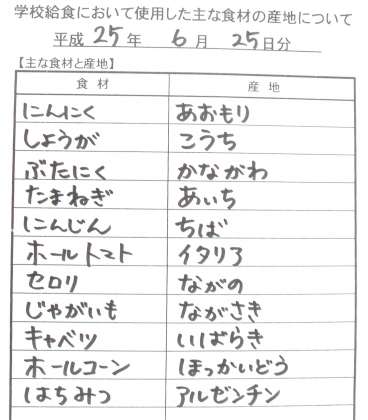 学校給食において使用した主な食材の産地について
平成 25 年 6 月 25 日分
【主な食材と産地】
食材 産地
にんにく あおもり
しょうが こうち
ぶたにく かながわ
たまねぎ あいち
にんじん ちば
ホールトマト イタリア
セロリ ながの
じゃがいも ながさき
キャベツ いばらき
ホールコーン ほっかいどう
はちみつ アルゼンチン